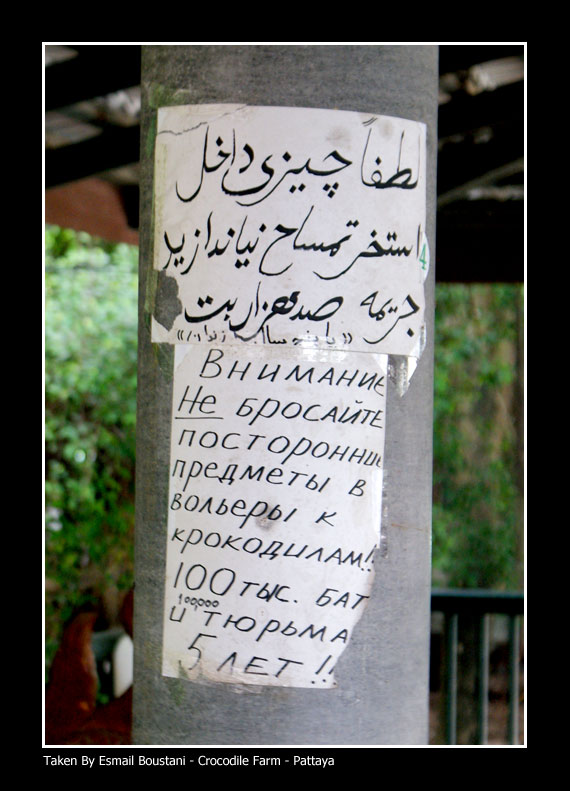 لطفاً چیزی داخل
استخر تمساح نیاندازید
4
جریمه صدهزار بت
«یا پنج سال زندان»
Внимание
Не бросайте
посторонние
предметы в
вольеры к
крокодилам!!
100 тыс. бат
100,000
и тюрьма
5 лет!!
Taken By Esmail Boustani - Crocodile Farm - Pattaya